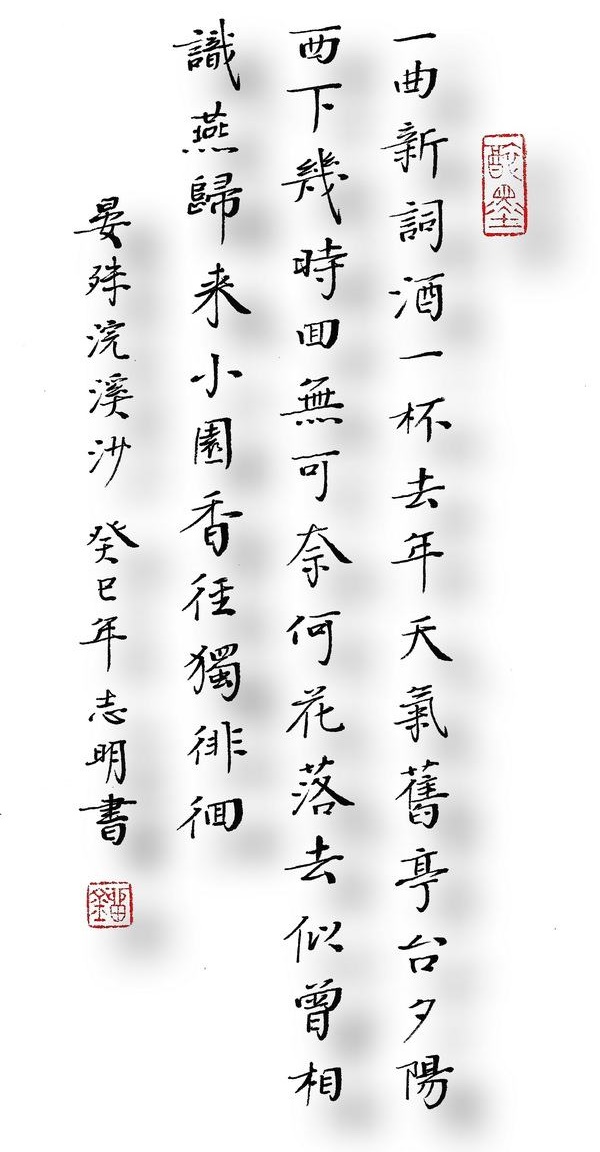 一曲新詞酒一杯去年天氣舊亭台夕陽
西下幾時回無可奈何花落去似曾相
識燕歸来小園香徑獨徘徊
晏殊浣溪沙 癸巳年志明書